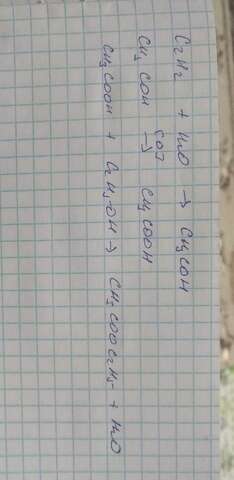 C₂H₂ + H₂O → CH₃COH
CH₃COH [O] → CH₃COOH
CH₃COOH + C₂H₅OH → CH₃COOC₂H₅ + H₂O